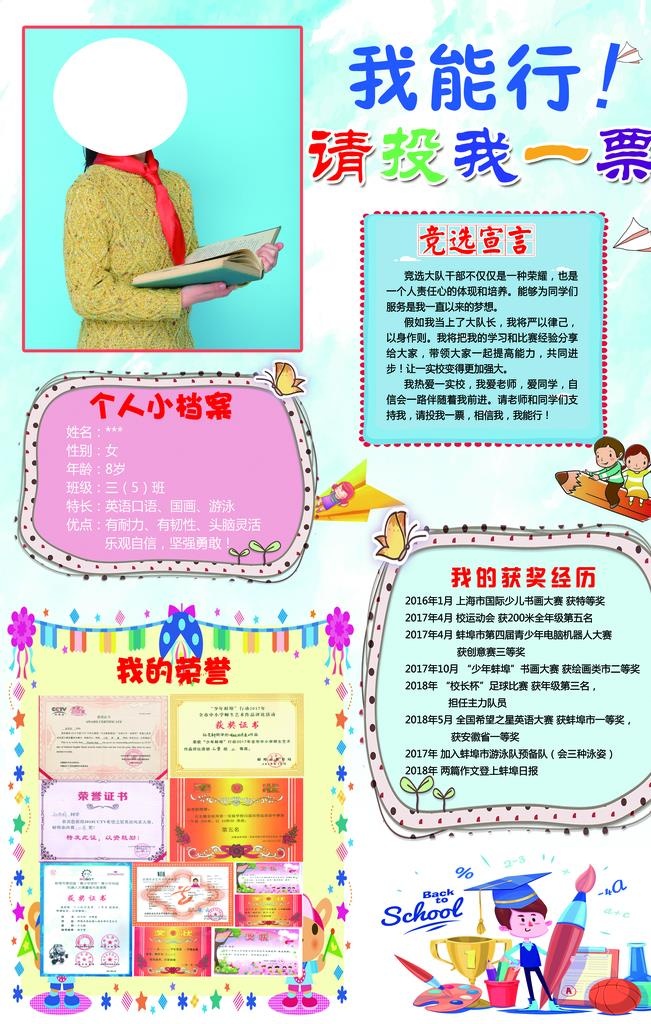 我能行!
请投我一票
竞选宣言
竞选大队干部不仅仅是一种荣耀，也是
一个人责任心的体现和培养。能够为同学们
服务是我一直以来的梦想。
假如我当上了大队长，我将严以律己，
以身作则。我将把我的学习和比赛经验分享
给大家，带领大家一起提高能力，共同进
步！让一实校变得更加强大。
我热爱一实校，我爱老师，爱同学，自
信会一路伴随着我前进。请老师和同学们支
持我，请投我一票，相信我，我能行！
个人小档案
姓名：***
性别：女
年龄：8岁
班级：三（5）班
特长：英语口语、国画、游泳
优点：有耐力、有韧性、头脑灵活
乐观自信，坚强勇敢！
我的获奖经历
2016年1月 上海市国际少儿书画大赛 获特等奖
2017年4月 校运动会 获200米全年级第五名
2017年4月 蚌埠市第四届青少年电脑机器人大赛
获创意赛三等奖
2017年10月 “少年蚌埠”书画大赛 获绘画类市二等奖
2018年 “校长杯”足球比赛 获年级第三名，
担任主力队员
2018年5月 全国希望之星英语大赛 获蚌埠市一等奖，
获安徽省一等奖
2017年 加入蚌埠市游泳队预备队（会三种泳姿）
2018年 两篇作文登上蚌埠日报
我的荣誉
CCTV
“少年蚌埠”行动2017年
全市中小学师生艺术作品评比活动
获奖证书
荣誉证书
特发此证，以资鼓励！
第五名
获奖证书
Back
to
School
%
2-3
+A
1
A